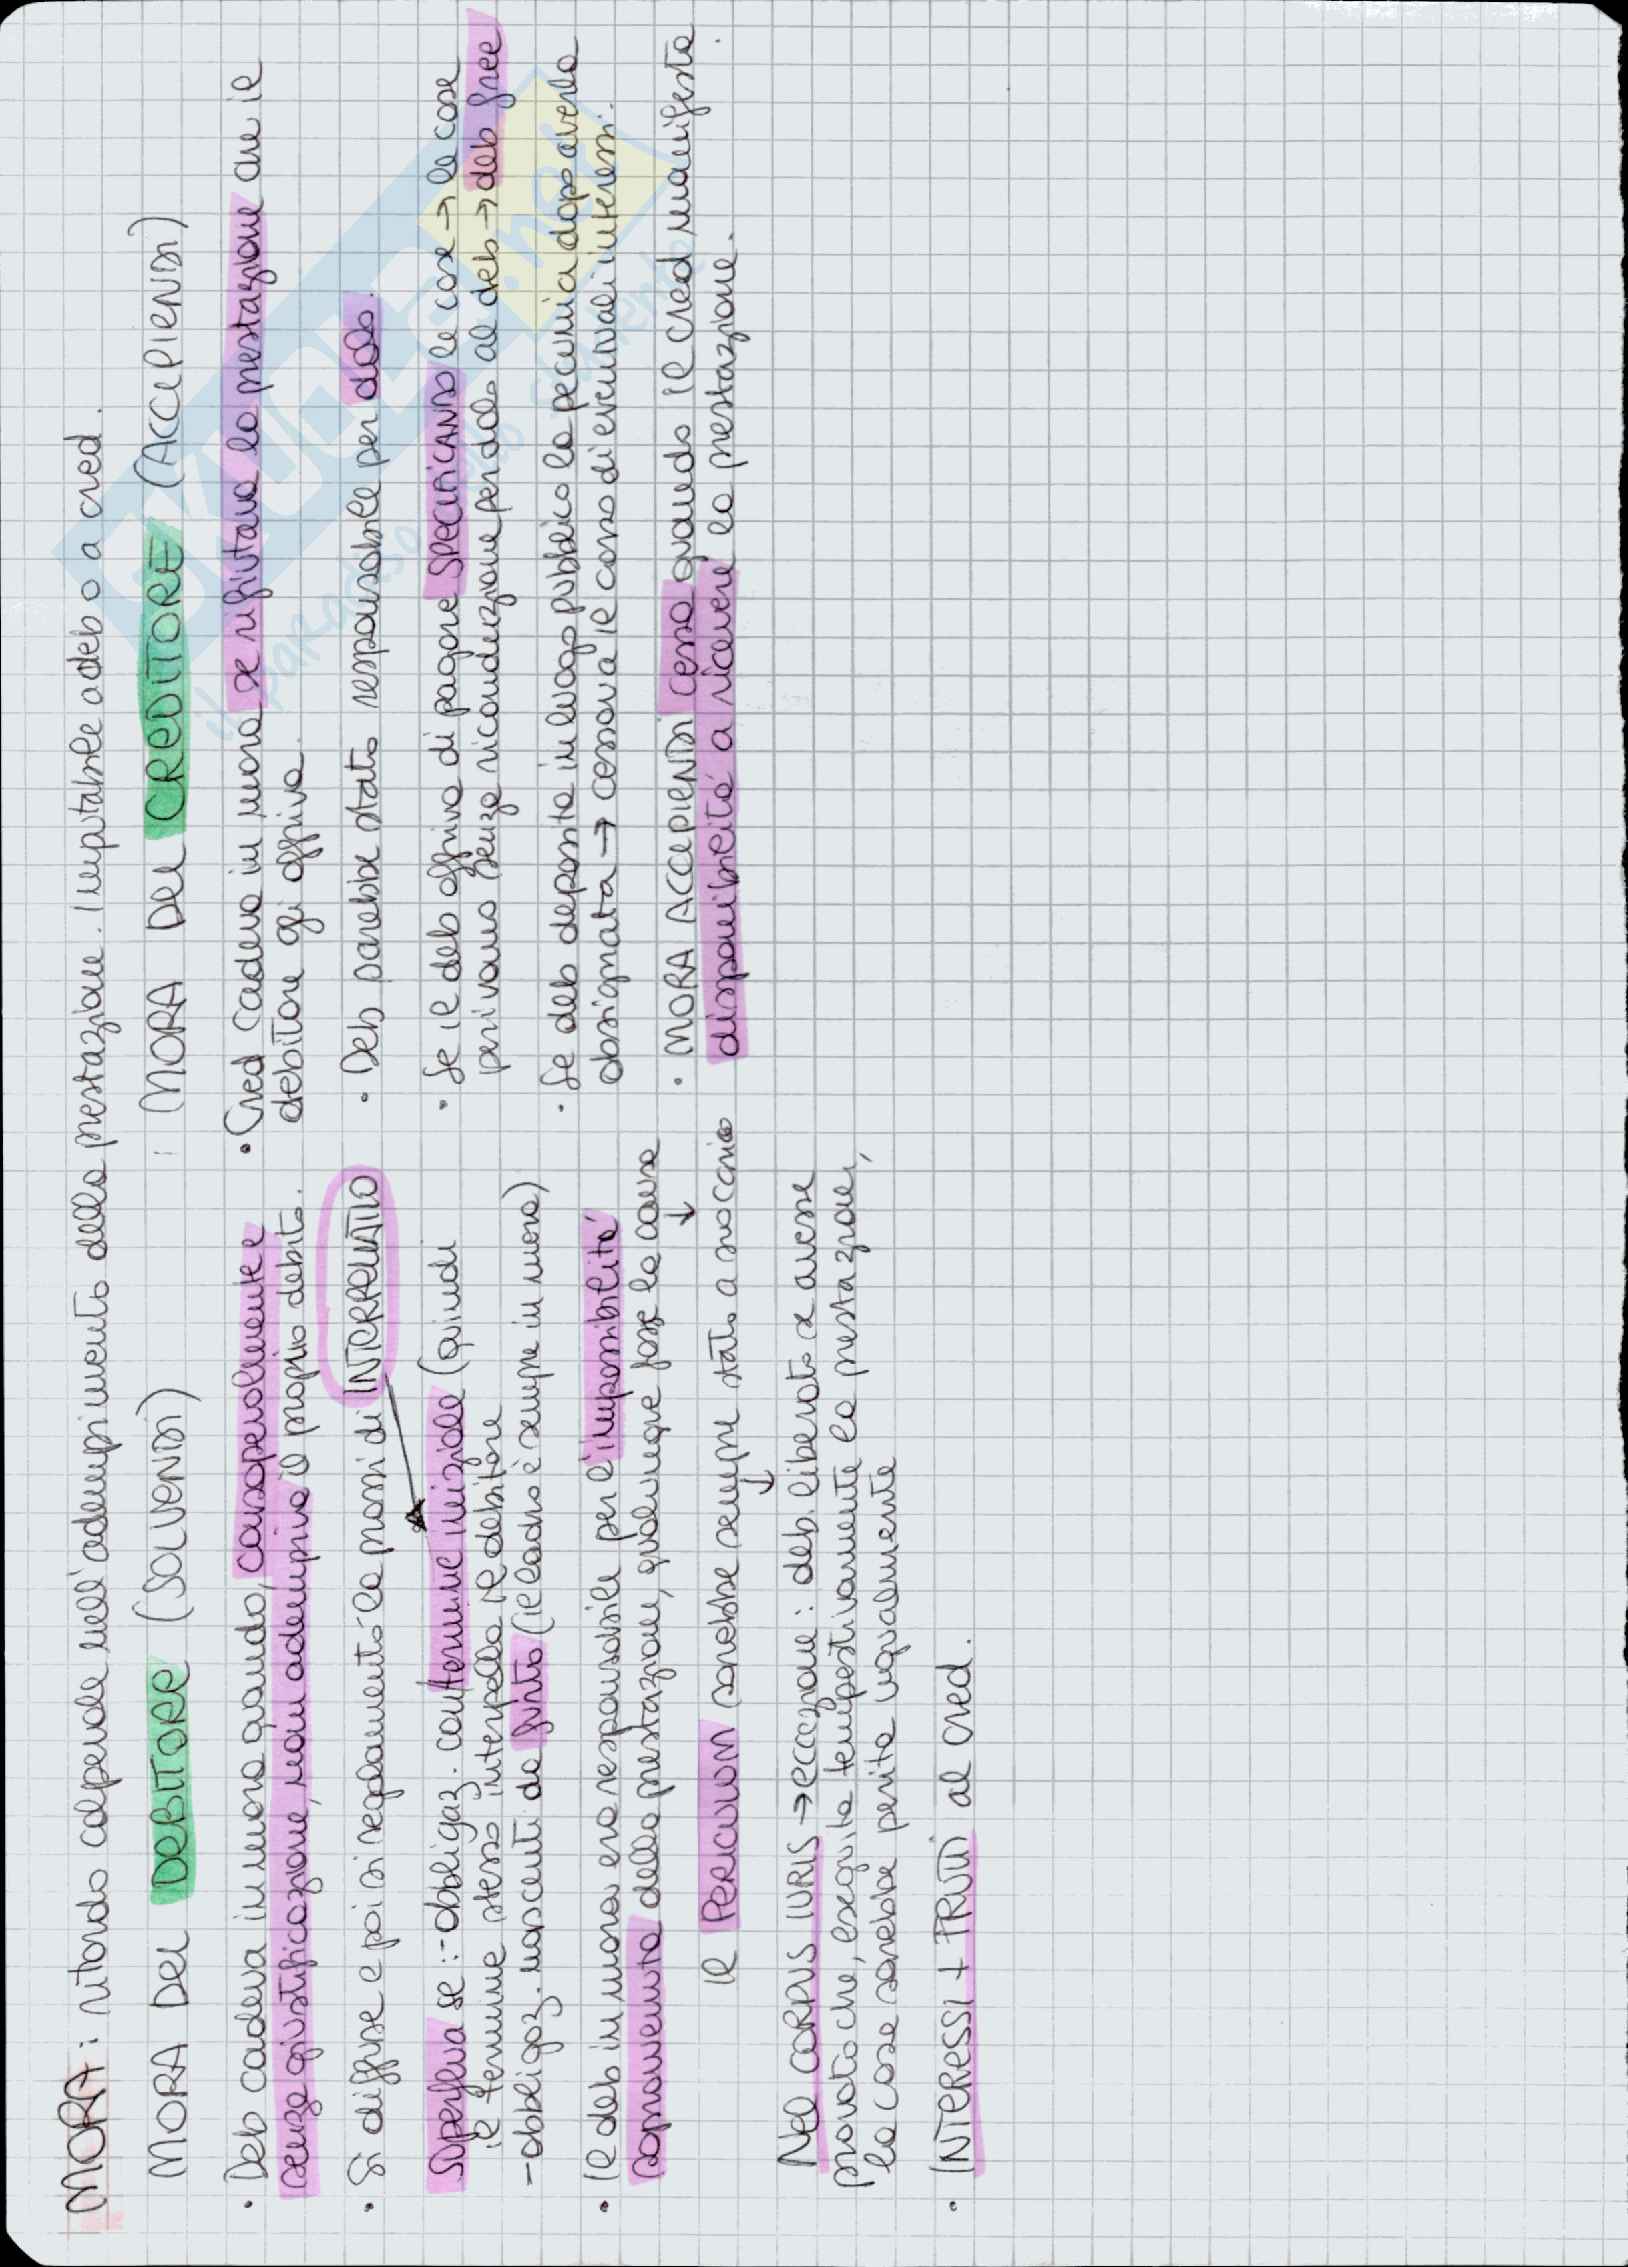 MORA: ritardo colpevole nell'adempimento della prestazione. Imputabile a deb o a cred.
MORA DEL DEBITORE (SOLVENDI)
• Deb cadeva in mora quando, consapevolmente e
senza giustificazione, non adempiva il proprio debito.
• Si diffuse e poi si regolamentò la prassi di INTERPELLATIO
Superflua se: - obbligaz. con termine iniziale (quindi
il termine stesso interpella il debitore
- obbligaz. nascenti da furto (il ladro è sempre in mora)
• Il deb in mora era responsabile per l'impossibilità
sopravvenuta della prestazione, qualunque fosse la causa
↓
Il PERICULUM sarebbe sempre stato a suo carico
↓
Nel CORPUS IURIS → eccezione: deb. liberato se avesse
provato che, eseguita tempestivamente la prestazione,
la cosa sarebbe perita ugualmente
• INTERESSI + FRUTTI al cred.
MORA DEL CREDITORE (ACCIPIENDI)
• Cred cadeva in mora se rifiutava la prestazione che il
debitore gli offriva.
• Deb sarebbe stato responsabile per dolo.
• Se il deb offriva di pagare SPECIFICANDO le cose → le cose
perivano senza riconduzione per dolo al deb → deb free
• Se deb deposita in luogo pubblico la pecunia dopo averla
obsignata → cessava il corso di eventuali interessi.
• MORA ACCIPIENDI cessa quando il cred manifesta
disponibilità a ricevere la prestazione.
SKUOLA.net
il paradiso dello studente